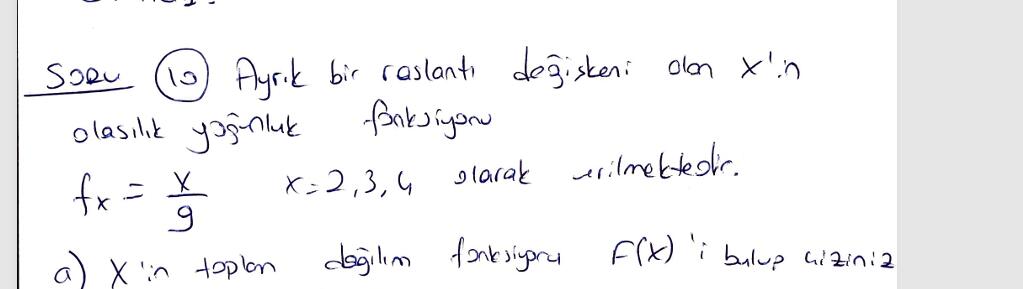 SORU 10 Ayrık bir raslantı değişkeni olan X'in
olasılık yoğunluk fonksiyonu
fx = x/9 x=2,3,4 olarak verilmektedir.
a) X'in toplam dağılım fonksiyonu F(x)'i bulup çiziniz